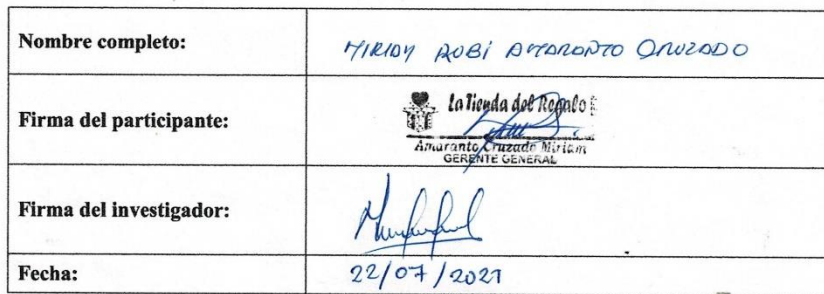 Nombre completo:
MIRIAM RUBI AMARANTO CRUZADO
Firma del participante:
La Tienda del Regalo
Amaranto Cruzado Miriam
GERENTE GENERAL
Firma del investigador:
Fecha:
22/07/2021